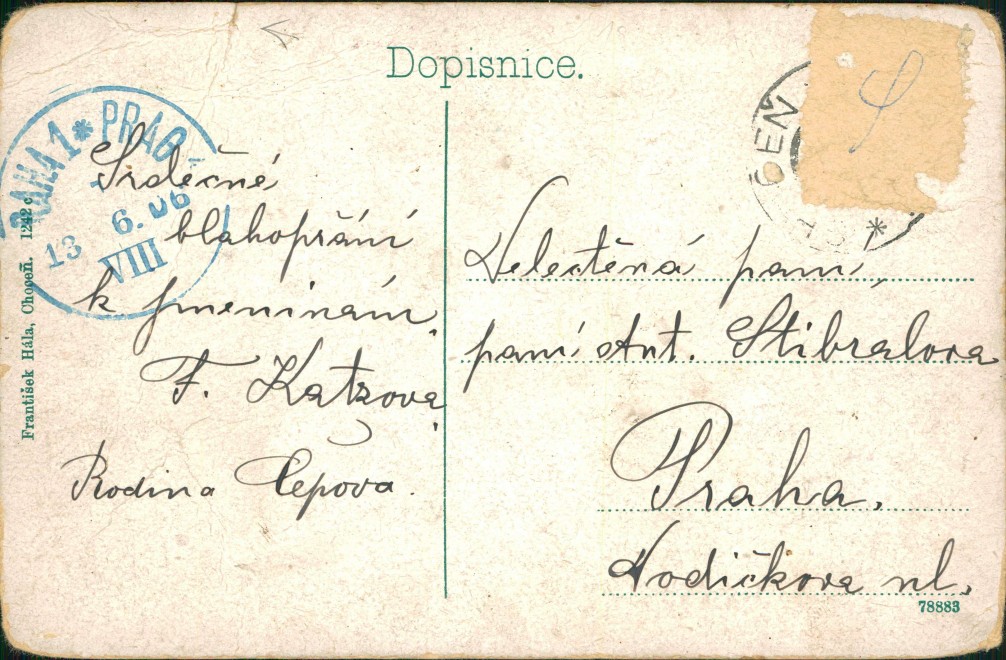 Dopisnice.
PRAHA 1 * PRAG
13 6.06
VIII
Srdečné
blahopřání
k jmeninám.
F. Katzova
Rodina Cepova.
Velectěná paní,
paní Ant. Stibralova
Praha,
Vodičkova ul.
František Hála, Choceň. 1242 c
78883